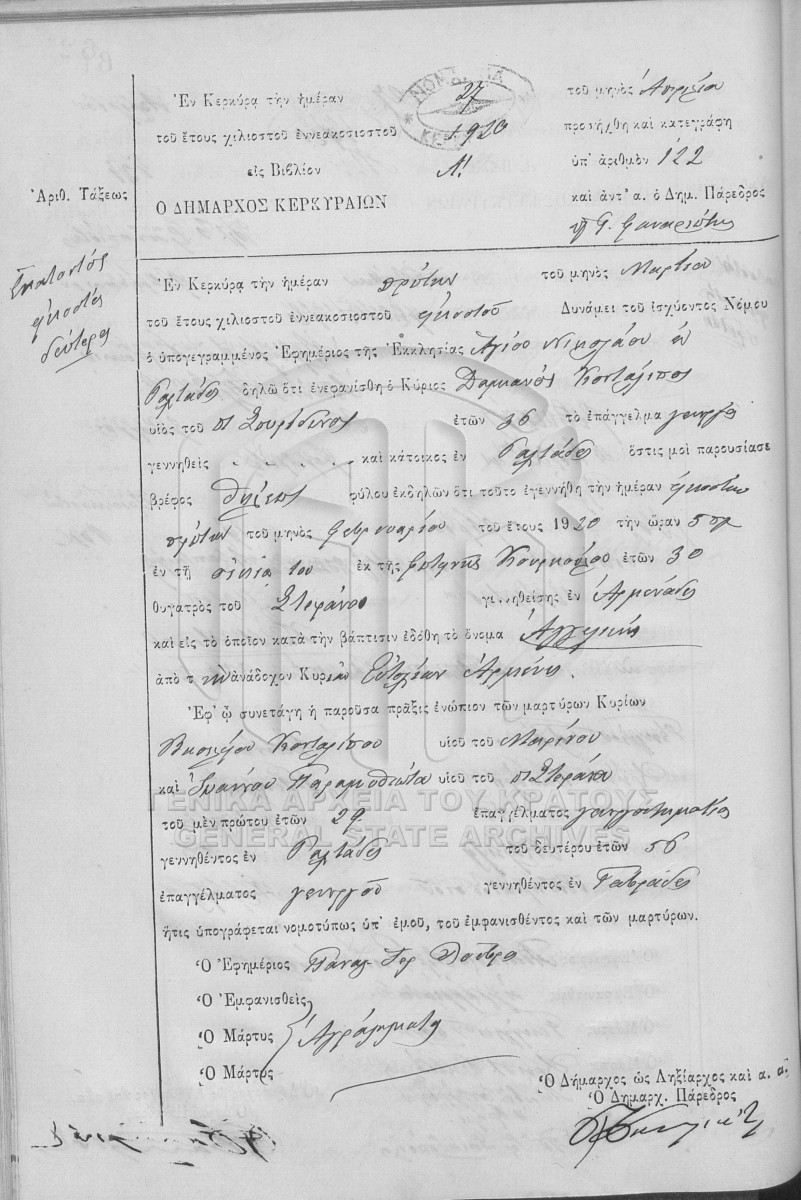 Ἐν Κερκύρᾳ τὴν ἡμέραν 27 τοῦ μηνὸς Ἀπριλίου
τοῦ ἔτους χιλιοστοῦ ἐννεακοσιοστοῦ 1920 προσήχθη καὶ κατεγράφη
εἰς Βιβλίον Α! ὑπ' ἀριθμὸν 122
Ἀριθ. Τάξεως
Ο ΔΗΜΑΡΧΟΣ ΚΕΡΚΥΡΑΙΩΝ καὶ ἀντ' α. ὁ Δημ. Πάρεδρος
Ἑκατοστὸς
εἰκοστὸς
δεύτερος
Ἐν Κερκύρᾳ τὴν ἡμέραν πρώτην τοῦ μηνὸς Μαρτίου
τοῦ ἔτους χιλιοστοῦ ἐννεακοσιοστοῦ εἰκοστοῦ Δυνάμει τοῦ ἰσχύοντος Νόμου
ὁ ὑπογεγραμμένος Ἐφημέριος τῆς Ἐκκλησίας Ἁγίου Νικολάου ἐν
δηλῶ ὅτι ἐνεφανίσθη ὁ Κύριος Δαμιανὸς
υἱὸς τοῦ π Σπυρίδωνος ἐτῶν 36 τὸ ἐπάγγελμα γεωργὸς
γεννηθεὶς . . . . . . καὶ κάτοικος ἐν ὅστις μοὶ παρουσίασε
βρέφος θήλεος φύλου ἐκδηλῶν ὅτι τοῦτο ἐγεννήθη τὴν ἡμέραν εἰκοστὴν
πρώτην τοῦ μηνὸς Φεβρουαρίου τοῦ ἔτους 1920 τὴν ὥραν 5 πμ
ἐν τῇ οἰκίᾳ του ἐκ τῆς ἐτῶν 30
θυγατρὸς τοῦ Στεφάνου γεννηθείσης ἐν Ἀρμενάδες
καὶ εἰς τὸ ὁποῖον κατὰ τὴν βάπτισιν ἐδόθη τὸ ὄνομα Ἀγγελικὴ
ἀπὸ τὴν ἀνάδοχον Κυρίαν
Ἐφ' ᾧ συνετάγη ἡ παροῦσα πρᾶξις ἐνώπιον τῶν μαρτύρων Κυρίων
υἱοῦ τοῦ Μαρίνου
καὶ Ἰωάννου Παραμυθιώτα υἱοῦ τοῦ π Στεφάνου
ΓΕΝΙΚΑ ΑΡΧΕΙΑ ΤΟΥ ΚΡΑΤΟΥΣ
τοῦ μὲν πρώτου ἐτῶν 29 ἐπαγγέλματος γεωργοκτηματίας
GENERAL STATE ARCHIVES
γεννηθέντος ἐν τοῦ δευτέρου ἐτῶν 56
ἐπαγγέλματος γεωργοῦ γεννηθέντος ἐν
ἥτις ὑπογράφεται νομοτύπως ὑπ' ἐμοῦ, τοῦ ἐμφανισθέντος καὶ τῶν μαρτύρων.
Ὁ Ἐφημέριος
Ὁ Ἐμφανισθεὶς
Ὁ Μάρτυς Ἀγράμματοι
Ὁ Μάρτυς
Ὁ Δήμαρχος ὡς Ληξίαρχος καὶ α. α.
Ὁ Δημαρχ. Πάρεδρος